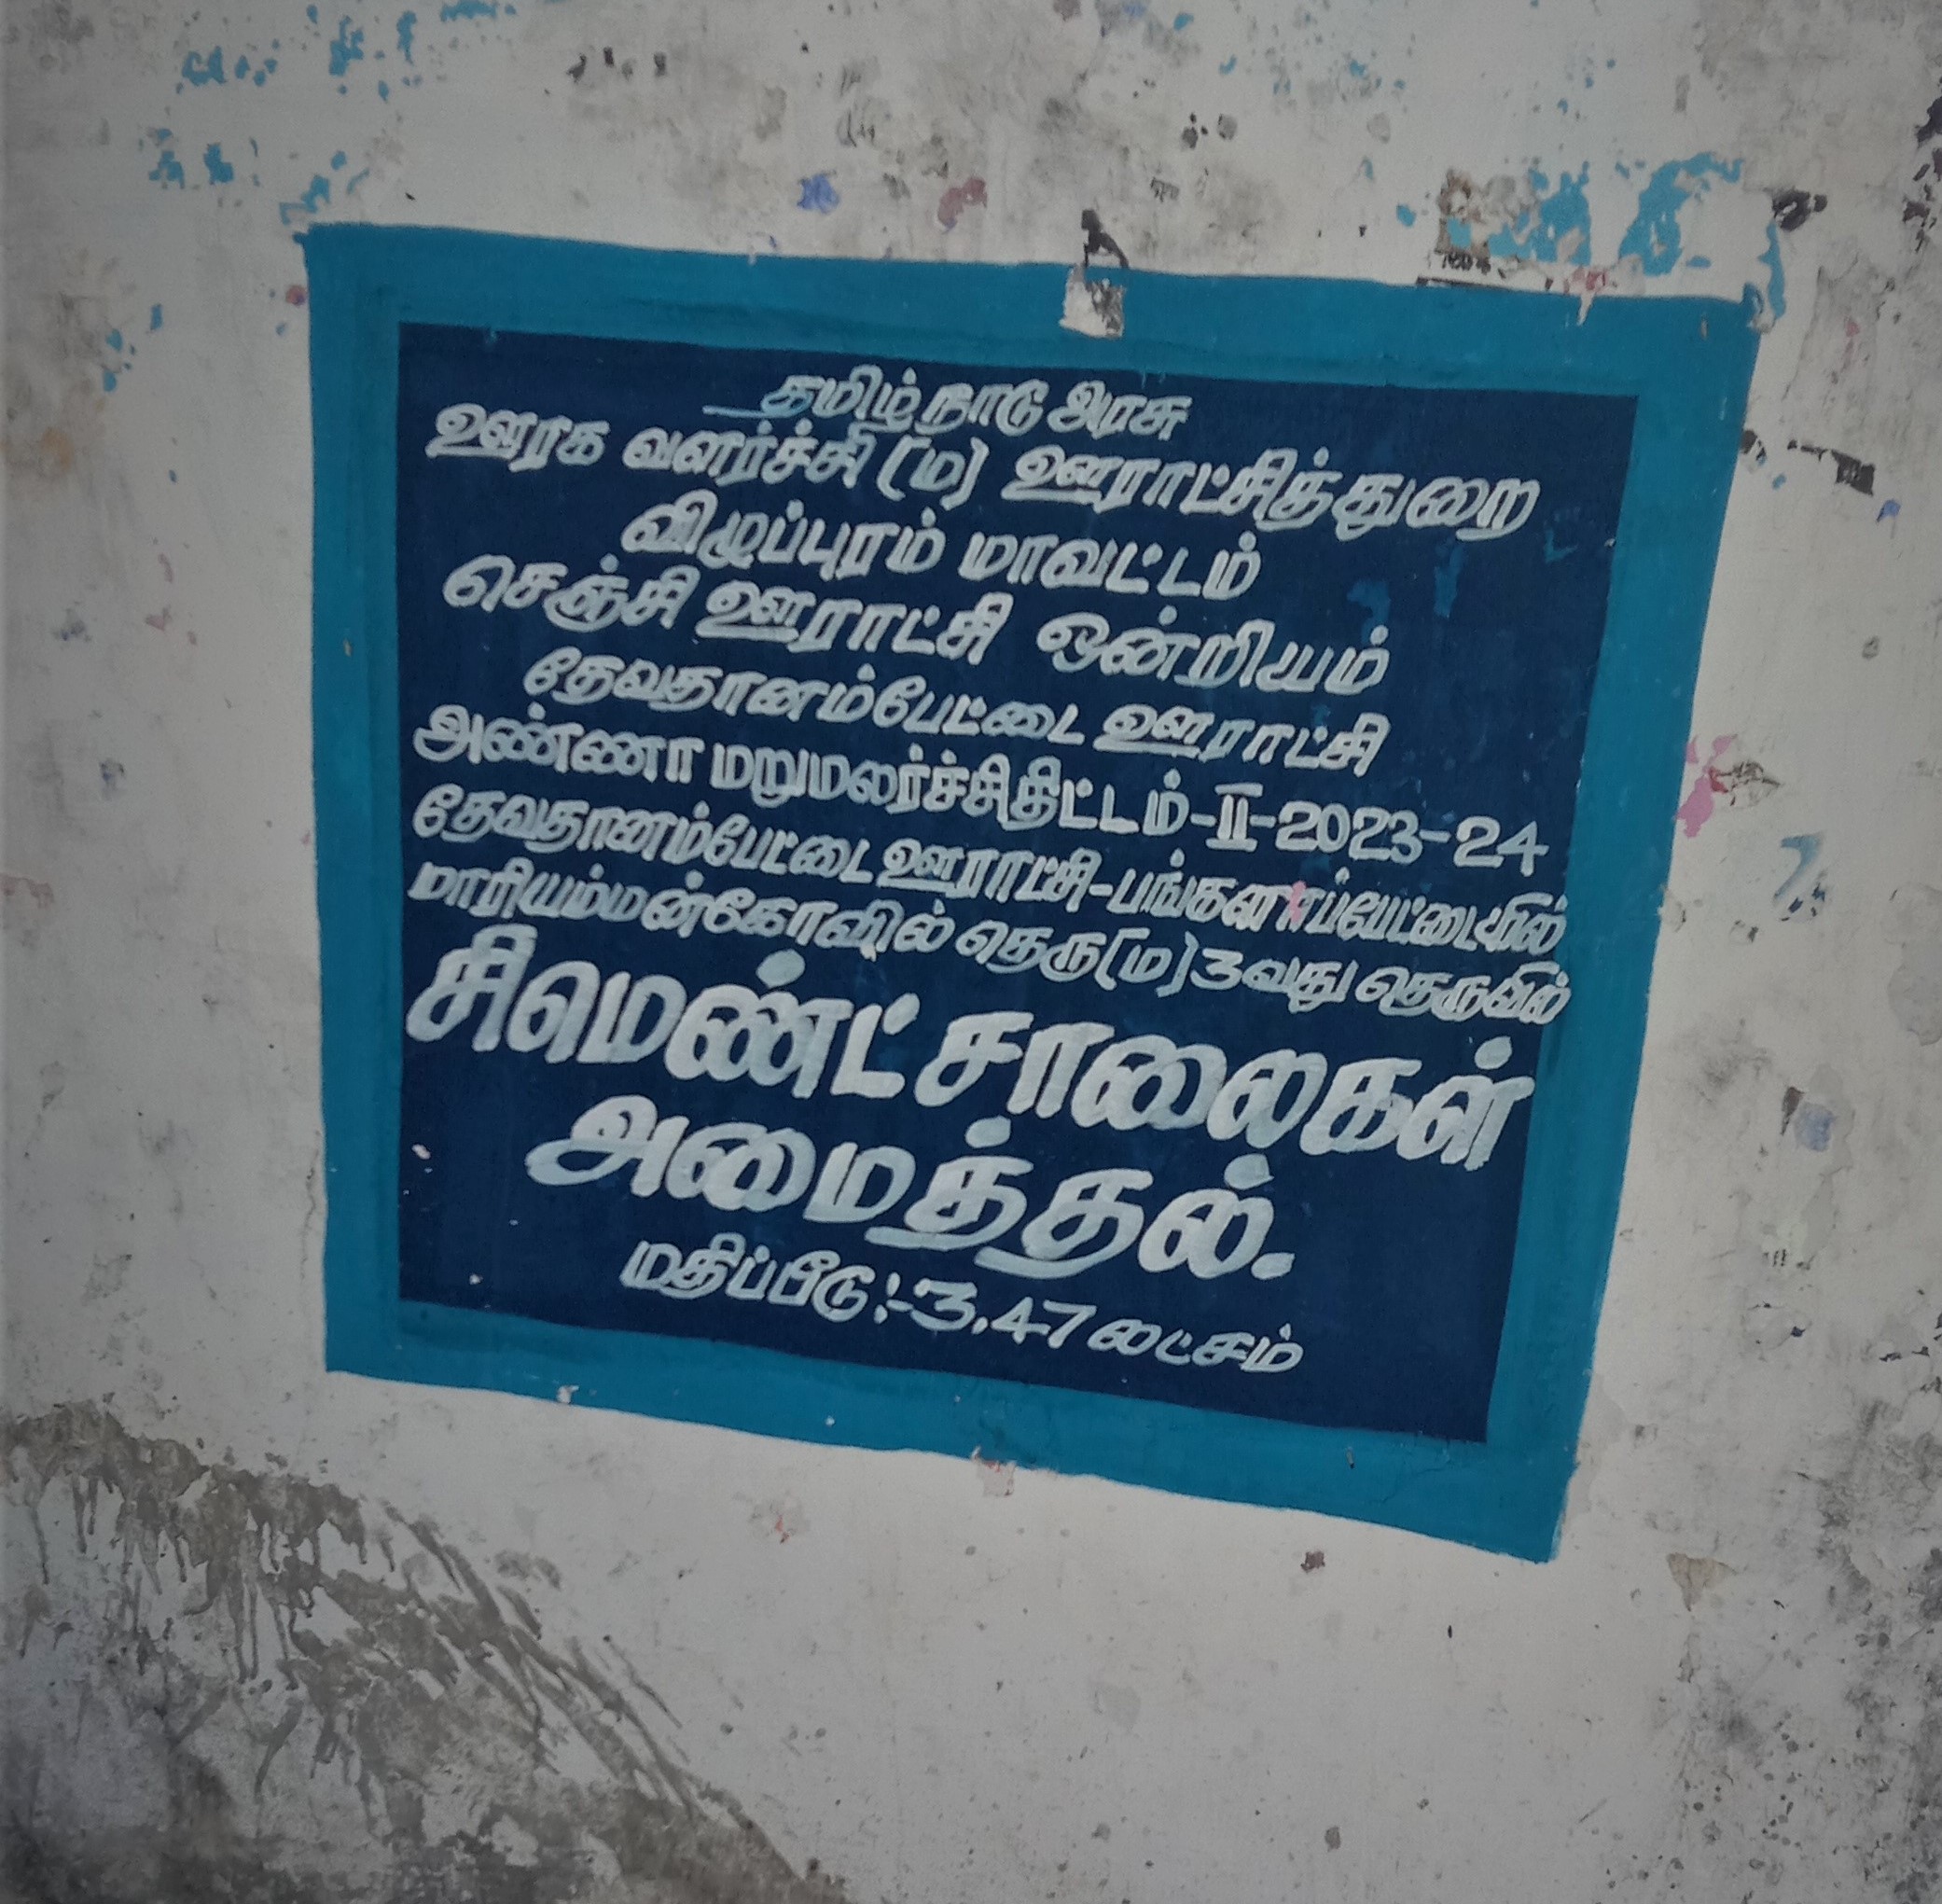 தமிழ் நாடு அரசு
ஊரக வளர்ச்சி (ம) ஊராட்சித்துறை
விழுப்புரம் மாவட்டம்
செஞ்சி ஊராட்சி ஒன்றியம்
தேவதானம்பேட்டை ஊராட்சி
அண்ணா மறுமலர்ச்சிதிட்டம்-II-2023-24
தேவதானம்பேட்டை ஊராட்சி-பங்களாப்பேட்டையில்
மாரியம்மன்கோவில் தெரு(ம)3வது தெருவில்
சிமெண்ட் சாலைகள்
அமைத்தல்.
மதிப்பீடு:-3.47 லட்சம்